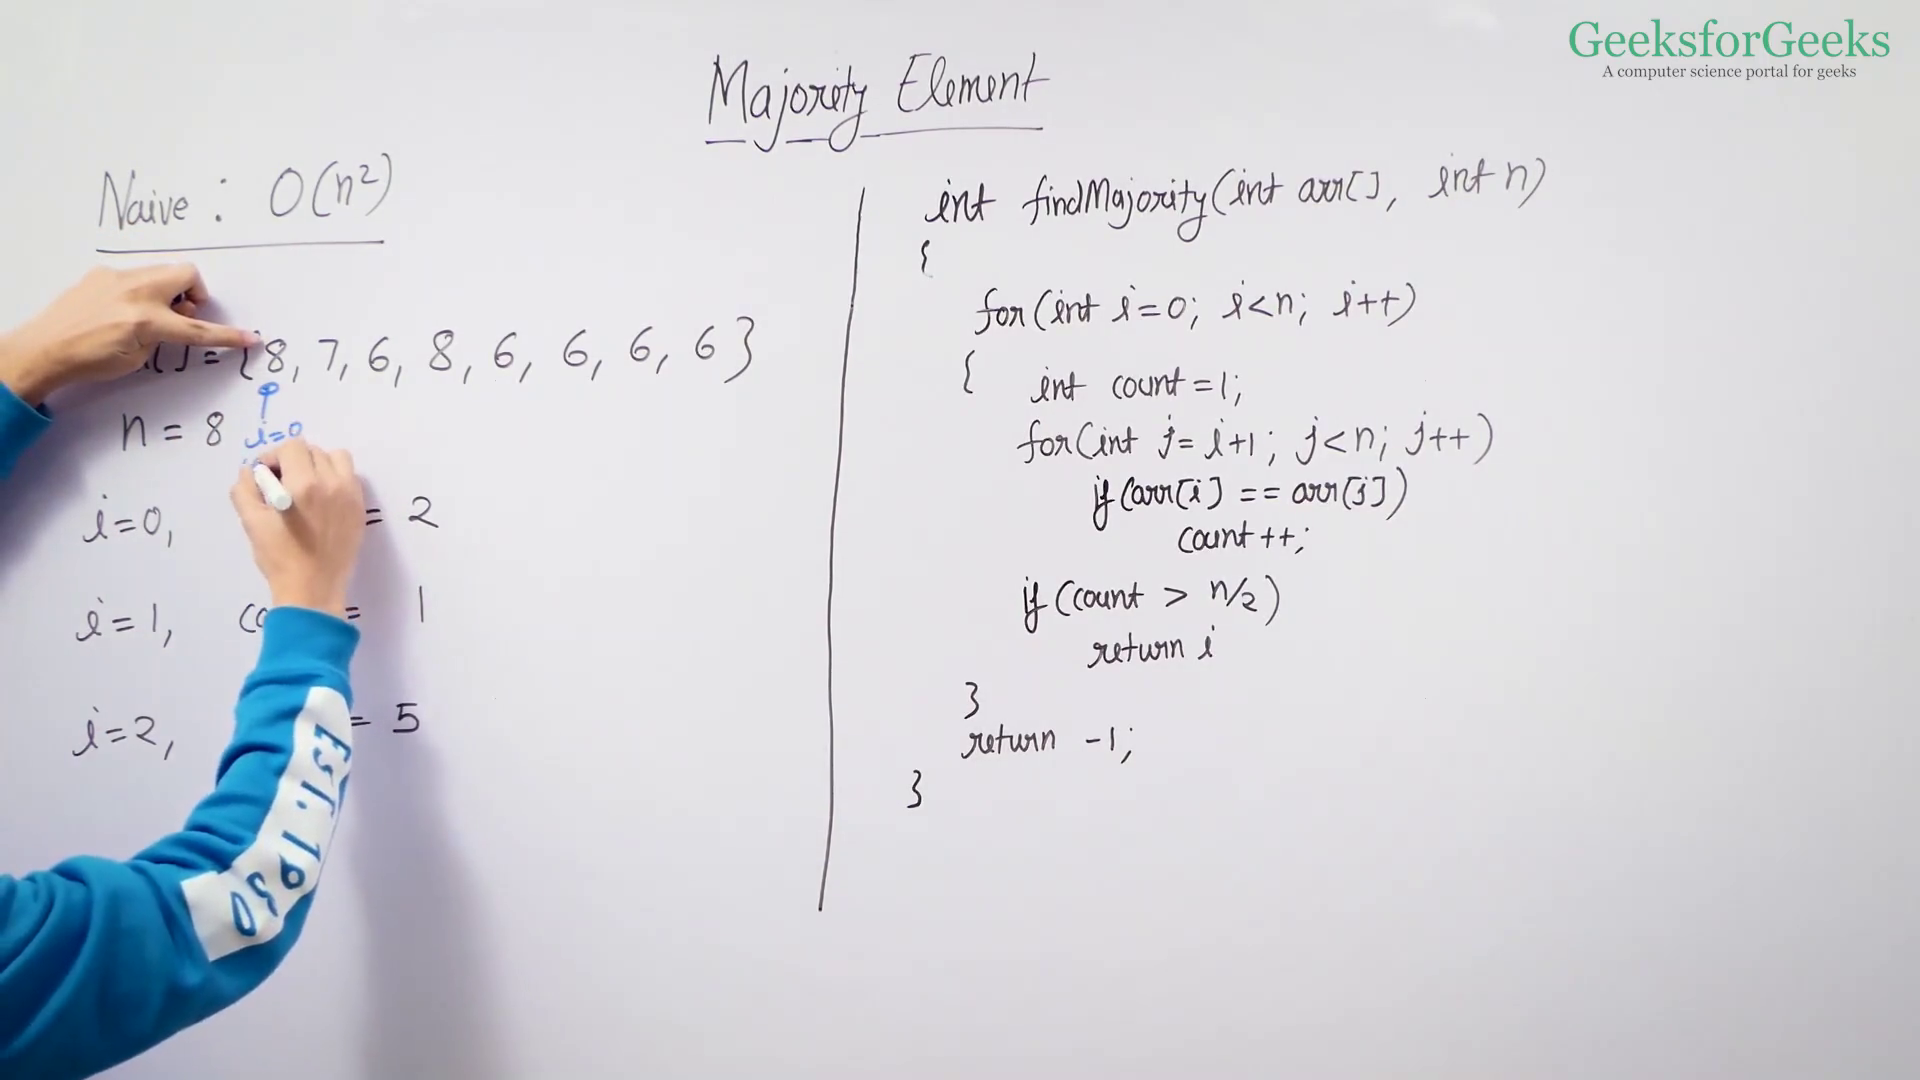 GeeksforGeeks
A computer science portal for geeks
Majority Element
Naive : O(n²)
[] = {8, 7, 6, 8, 6, 6, 6, 6}
n = 8
i=0
i=0, = 2
i=1, = 1
i=2, = 5
int findMajority(int arr[], int n)
{
for(int i=0; i<n; i++)
{ int count=1;
for(int j= i+1; j<n; j++)
if(arr[i] == arr[j])
count++;
if(count > n/2)
return i
}
return -1;
}
EST. 1930